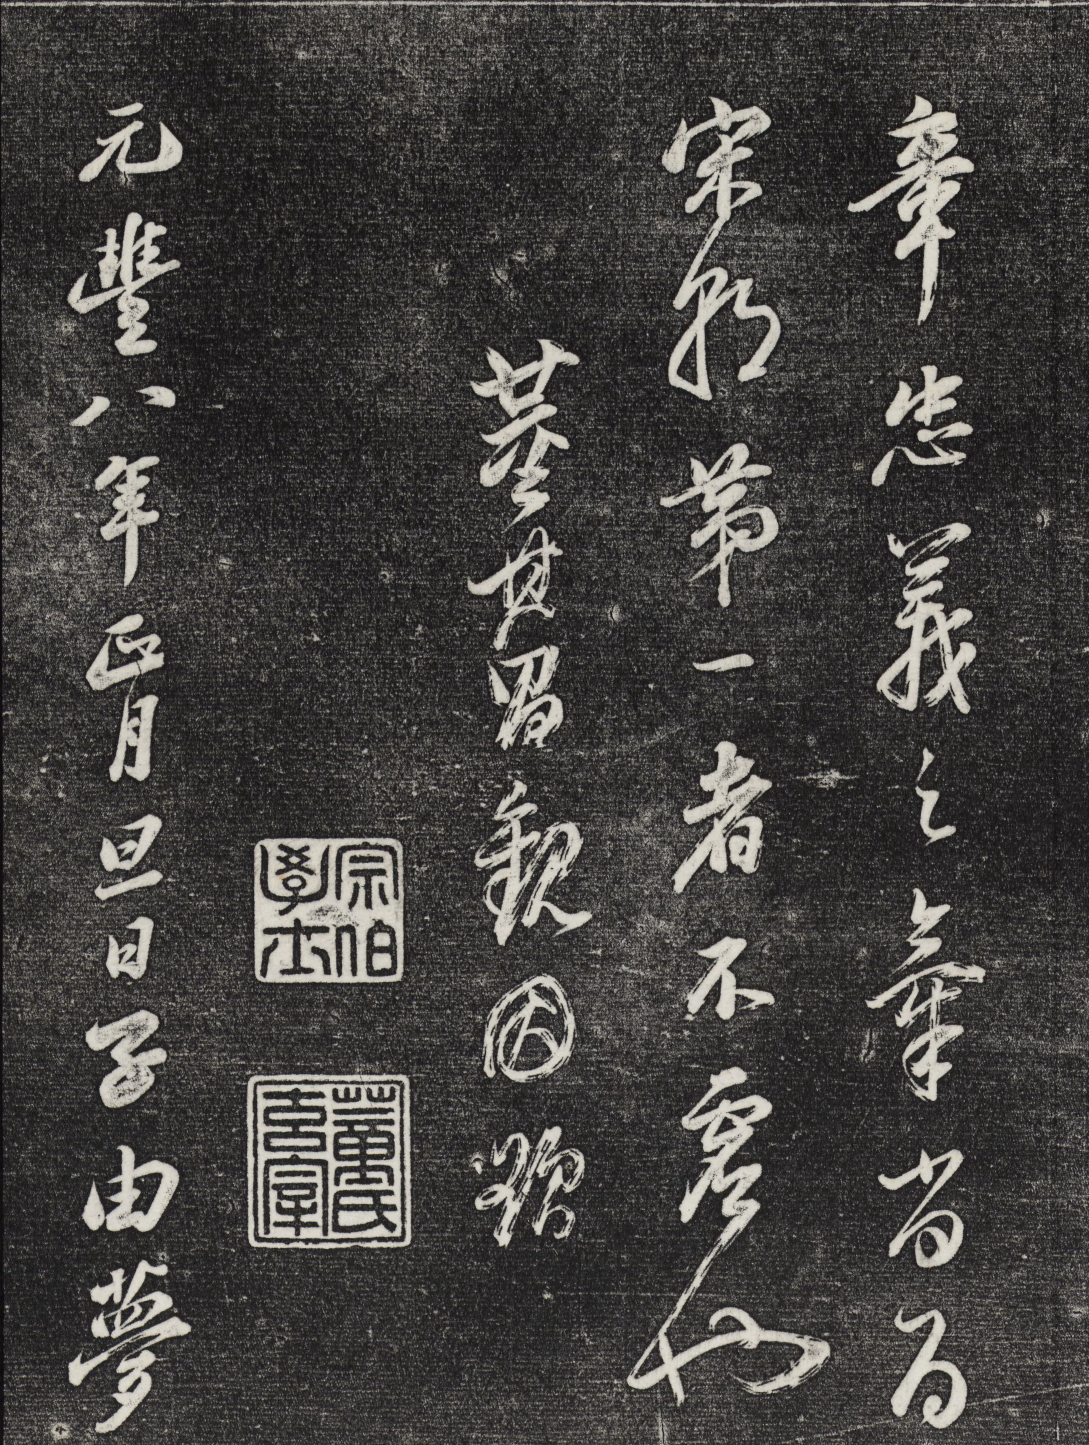 章忠義之氣當为
宋朝第一者不虛也
董其昌觀因題
宗伯學士
董氏玄宰
元豐八年正月旦日子由夢